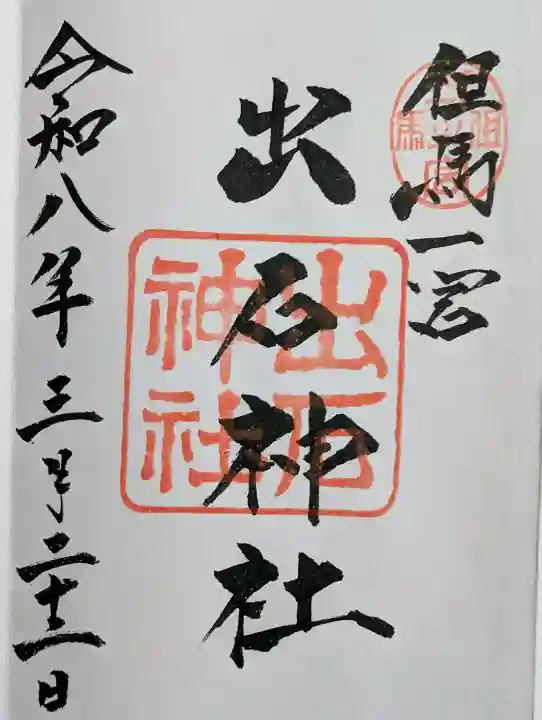 但馬一宮
但馬一宮
出石神社
出石神社
令和八年三月二十二日